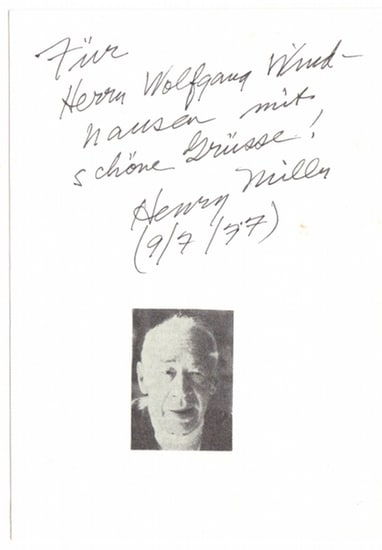 Für
Herrn Wolfgang Wind-
hausen mit
schöne Grüsse!
Henry Miller
(9/7/77)